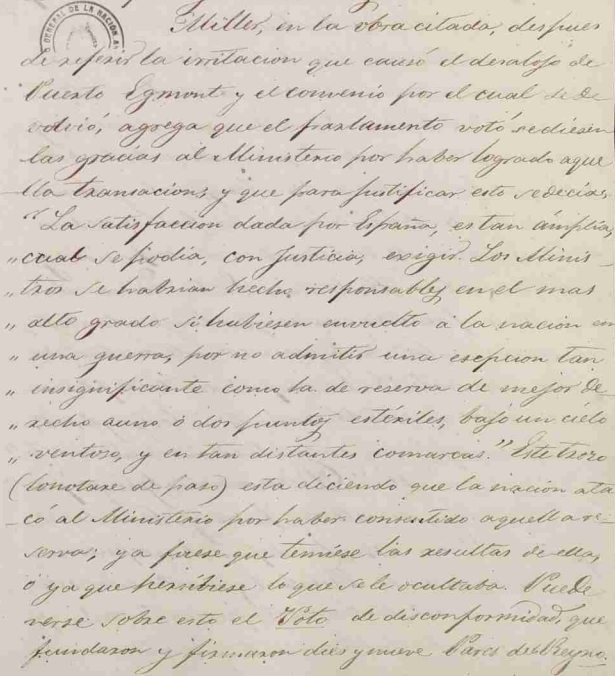 GENERAL DE LA NACION
Miller, en la obra citada, despues
de referir la irritacion que causó el desalojo de
Puerto Egmont y el convenio por el cual se de
volvió, agrega que el parlamento votó se diesen
las gracias al Ministerio por haber logrado aque
lla transacion; y que para justificar esto se decia:
"La satisfaccion dada por España, es tan ámplia,
" cual se podia, con justicia, exigir. Los Minis-
" tros se habrian hecho responsables en el mas
" alto grado si hubiesen envuelto á la nacion en
" una guerra, por no admitir una esepcion tan
" insignificante como la de reserva de mejor de-
" recho a uno ó dos puntos estériles, bajo un cielo
" ventoso, y en tan distantes comarcas." Este trozo
(lo notare de paso) esta diciendo que la nacion ata
-có al Ministerio por haber consentido aquella re-
serva; ya fuese que temiese las resultas de ella,
o ya que lo que se le ocultaba. Puede
verse sobre esto el Voto de disconformidad, que
fundaron y firmaron dies y nueve Pares del Reyno.